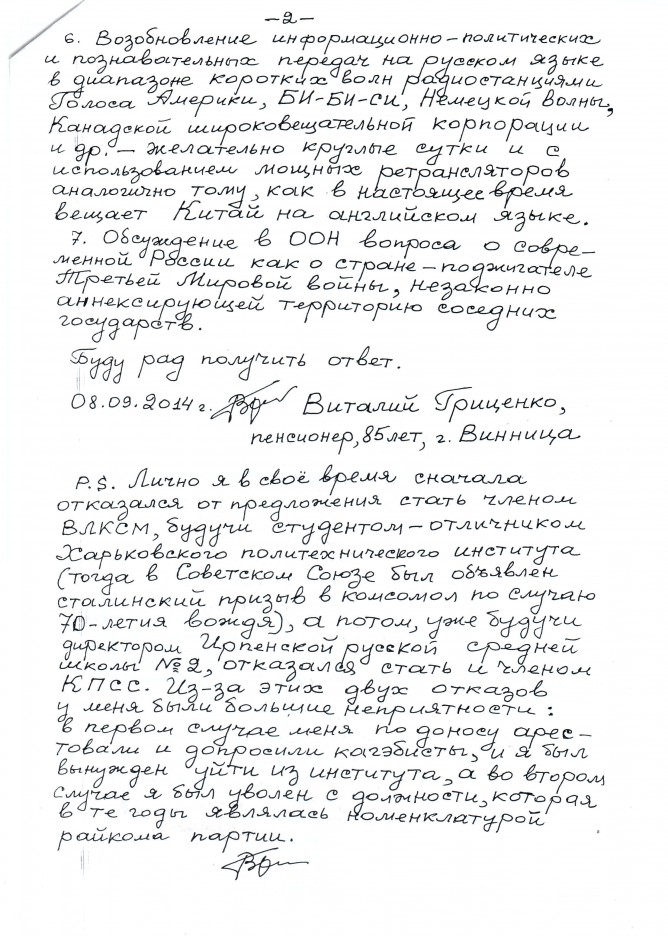 —2—
6. Возобновление информационно-политических
и познавательных передач на русском языке
в диапазоне коротких волн радиостанциями
Голоса Америки, БИ-БИ-си, Немецкой волны,
Канадской широковещательной корпорации
и др. — желательно круглые сутки и с
использованием мощных ретрансляторов
аналогично тому, как в настоящее время
вещает Китай на английском языке.
7. Обсуждение в ООН вопроса о совре-
менной России как о стране-поджигателе
Третьей Мировой войны, незаконно
аннексирующей территорию соседних
государств.
Буду рад получить ответ.
08.09.2014 г. Виталий Гриценко,
пенсионер, 85 лет, г. Винница
P.S. Лично я в своё время сначала
отказался от предложения стать членом
ВЛКСМ, будучи студентом-отличником
Харьковского политехнического института
(тогда в Советском Союзе был объявлен
сталинский призыв в комсомол по случаю
70-летия вождя), а потом, уже будучи
директором Ирпенской русской средней
школы №2, отказался стать и членом
КПСС. Из-за этих двух отказов
у меня были большие неприятности:
в первом случае меня по доносу арес-
товали и допросили кагэбисты, и я был
вынужден уйти из института, а во втором
случае я был уволен с должности, которая
в те годы являлась номенклатурой
райкома партии.